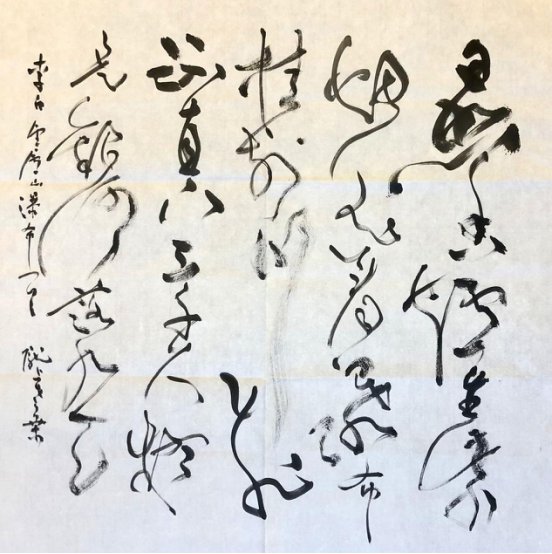 日照香爐生紫
烟遥看瀑布
挂前川飛
流直下三千尺疑
是銀河落九天
李白望廬山瀑布一首